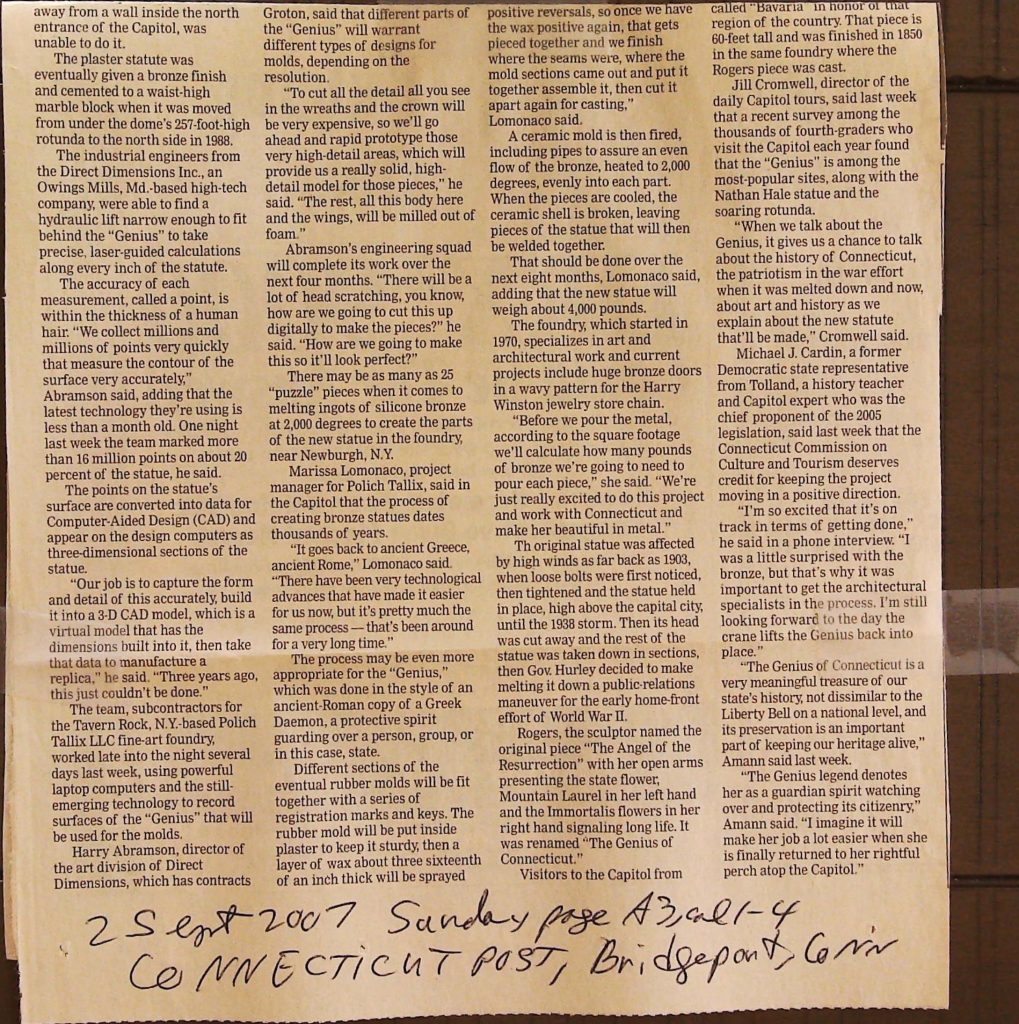 away from a wall inside the north
entrance of the Capitol, was
unable to do it.
The plaster statue was
eventually given a bronze finish
and cemented to a waist-high
marble block when it was moved
from under the dome's 257-foot-high
rotunda to the north side in 1988.
The industrial engineers from
the Direct Dimensions Inc., an
Owings Mills, Md.-based high-tech
company, were able to find a
hydraulic lift narrow enough to fit
behind the "Genius" to take
precise, laser-guided calculations
along every inch of the statute.
The accuracy of each
measurement, called a point, is
within the thickness of a human
hair. "We collect millions and
millions of points very quickly
that measure the contour of the
surface very accurately,"
Abramson said, adding that the
latest technology they're using is
less than a month old. One night
last week the team marked more
than 16 million points on about 20
percent of the statue, he said.
The points on the statue's
surface are converted into data for
Computer-Aided Design (CAD) and
appear on the design computers as
three-dimensional sections of the
statue.
"Our job is to capture the form
and detail of this accurately, build
it into a 3-D CAD model, which is a
virtual model that has the
dimensions built into it, then take
that data to manufacture a
replica," he said. "Three years ago,
this just couldn't be done."
The team, subcontractors for
the Tavern Rock, N.Y.-based Polich
Tallix LLC fine-art foundry,
worked late into the night several
days last week, using powerful
laptop computers and the still-
emerging technology to record
surfaces of the "Genius" that will
be used for the molds.
Harry Abramson, director of
the art division of Direct
Dimensions, which has contracts
Groton, said that different parts of
the "Genius" will warrant
different types of designs for
molds, depending on the
resolution.
"To cut all the detail all you see
in the wreaths and the crown will
be very expensive, so we'll go
ahead and rapid prototype those
very high-detail areas, which will
provide us a really solid, high-
detail model for those pieces," he
said. "The rest, all this body here
and the wings, will be milled out of
foam."
Abramson's engineering squad
will complete its work over the
next four months. "There will be a
lot of head scratching, you know,
how are we going to cut this up
digitally to make the pieces?" he
said. "How are we going to make
this so it'll look perfect?"
There may be as many as 25
"puzzle" pieces when it comes to
melting ingots of silicone bronze
at 2,000 degrees to create the parts
of the new statue in the foundry,
near Newburgh, N.Y.
Marissa Lomonaco, project
manager for Polich Tallix, said in
the Capitol that the process of
creating bronze statues dates
thousands of years.
"It goes back to ancient Greece,
ancient Rome," Lomonaco said.
"There have been very technological
advances that have made it easier
for us now, but it's pretty much the
same process — that's been around
for a very long time."
The process may be even more
appropriate for the "Genius,"
which was done in the style of an
ancient-Roman copy of a Greek
Daemon, a protective spirit
guarding over a person, group, or
in this case, state.
Different sections of the
eventual rubber molds will be fit
together with a series of
registration marks and keys. The
rubber mold will be put inside
plaster to keep it sturdy, then a
layer of wax about three sixteenth
of an inch thick will be sprayed
positive reversals, so once we have
the wax positive again, that gets
pieced together and we finish
where the seams were, where the
mold sections came out and put it
together assemble it, then cut it
apart again for casting,"
Lomonaco said.
A ceramic mold is then fired,
including pipes to assure an even
flow of the bronze, heated to 2,000
degrees, evenly into each part.
When the pieces are cooled, the
ceramic shell is broken, leaving
pieces of the statue that will then
be welded together.
That should be done over the
next eight months, Lomonaco said,
adding that the new statue will
weigh about 4,000 pounds.
The foundry, which started in
1970, specializes in art and
architectural work and current
projects include huge bronze doors
in a wavy pattern for the Harry
Winston jewelry store chain.
"Before we pour the metal,
according to the square footage
we'll calculate how many pounds
of bronze we're going to need to
pour each piece," she said. "We're
just really excited to do this project
and work with Connecticut and
make her beautiful in metal."
Th original statue was affected
by high winds as far back as 1903,
when loose bolts were first noticed,
then tightened and the statue held
in place, high above the capital city,
until the 1938 storm. Then its head
was cut away and the rest of the
statue was taken down in sections,
then Gov. Hurley decided to make
melting it down a public-relations
maneuver for the early home-front
effort of World War II.
Rogers, the sculptor named the
original piece "The Angel of the
Resurrection" with her open arms
presenting the state flower,
Mountain Laurel in her left hand
and the Immortalis flowers in her
right hand signaling long life. It
was renamed "The Genius of
Connecticut."
Visitors to the Capitol from
called "Bavaria" in honor of that
region of the country. That piece is
60-feet tall and was finished in 1850
in the same foundry where the
Rogers piece was cast.
Jill Cromwell, director of the
daily Capitol tours, said last week
that a recent survey among the
thousands of fourth-graders who
visit the Capitol each year found
that the "Genius" is among the
most-popular sites, along with the
Nathan Hale statue and the
soaring rotunda.
"When we talk about the
Genius, it gives us a chance to talk
about the history of Connecticut,
the patriotism in the war effort
when it was melted down and now,
about art and history as we
explain about the new statute
that'll be made," Cromwell said.
Michael J. Cardin, a former
Democratic state representative
from Tolland, a history teacher
and Capitol expert who was the
chief proponent of the 2005
legislation, said last week that the
Connecticut Commission on
Culture and Tourism deserves
credit for keeping the project
moving in a positive direction.
"I'm so excited that it's on
track in terms of getting done,"
he said in a phone interview. "I
was a little surprised with the
bronze, but that's why it was
important to get the architectural
specialists in the process. I'm still
looking forward to the day the
crane lifts the Genius back into
place."
"The Genius of Connecticut is a
very meaningful treasure of our
state's history, not dissimilar to the
Liberty Bell on a national level, and
its preservation is an important
part of keeping our heritage alive,"
Amann said last week.
"The Genius legend denotes
her as a guardian spirit watching
over and protecting its citizenry,"
Amann said. "I imagine it will
make her job a lot easier when she
is finally returned to her rightful
perch atop the Capitol."
2 Sept 2007 Sunday page A3, col 1-4
CONNECTICUT POST, Bridgeport, Conn